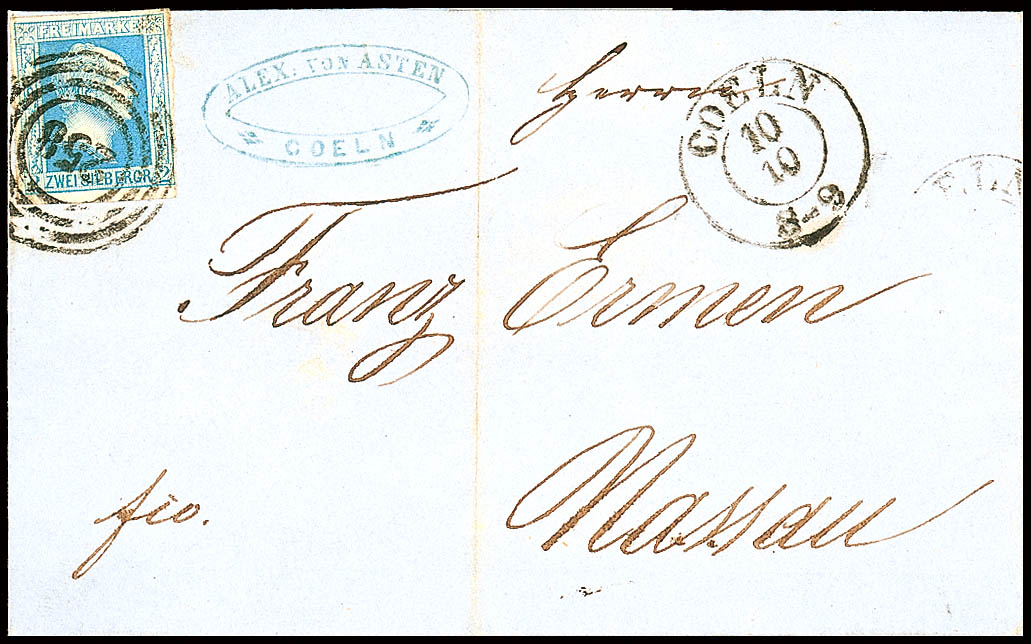 FREIMARKE
2 ZWEI SILBERGR. 2
ALEX. VON ASTEN
COELN
Herrn
COELN
10
10
8-9
Franz Ermen
Nassau
fco.